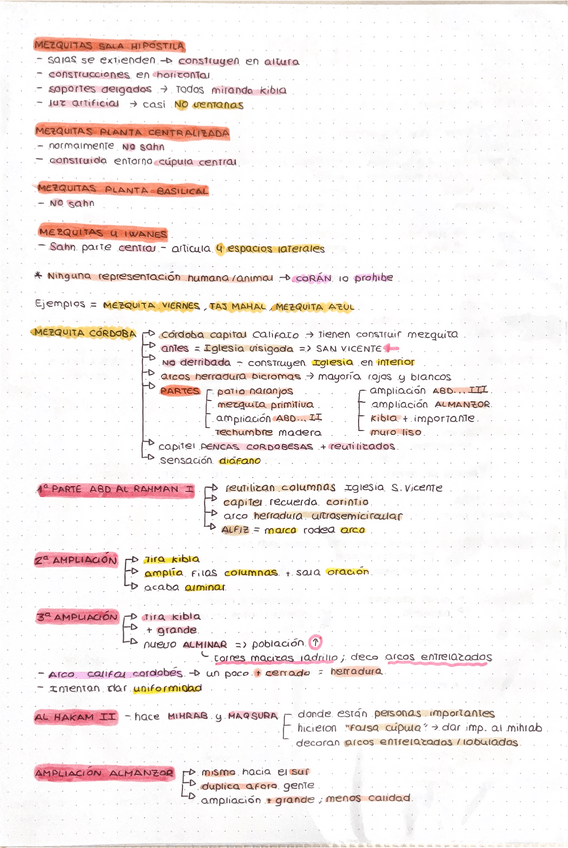 MEZQUITAS SALA HIPÓSTILA
- salas se extienden → construyen en altura
- construcciones en horizontal
- soportes delgados → Todos mirando kibla
- luz artificial → casi NO ventanas
MEZQUITAS PLANTA CENTRALIZADA
- normalmente NO sahn
- construido entorno cúpula central
MEZQUITAS PLANTA BASILICAL
- NO sahn
MEZQUITAS 4 IWANES
- Sahn parte central - articula 4 espacios laterales
* Ninguna representación humana/animal → CORÁN lo prohibe
Ejemplos = MEZQUITA VIERNES, TAJ MAHAL, MEZQUITA AZUL
MEZQUITA CÓRDOBA → córdoba capital Califato → tienen construir mezquita
→ antes = Iglesia visigoda => SAN VICENTE ←
→ NO derribada - construyen Iglesia en interior
→ arcos herradura bicromas → mayoría rojos y blancos
→ PARTES patio naranjos ampliación ABD...III
mezquita primitiva ampliación ALMANZOR
ampliación ABD...II kibla + importante
techumbre madera muro liso
→ capitel PENCAS CORDOBESAS + reutilizados
→ sensación diáfano
1ª PARTE ABD AL RAHMAN I → reutilizan columnas Iglesia S. Vicente
→ capitel recuerda corintio
→ arco herradura ultrasemicircular
→ ALFIZ = marco rodea arco
2ª AMPLIACIÓN → tira kibla
→ amplía filas columnas + sala oración
→ acaba alminar
3ª AMPLIACIÓN → tira kibla
→ + grande
→ nuevo ALMINAR => población ↑
torres macizas ladrillo; deco arcos entrelazados
- Arco califal cordobés → un poco + cerrado = herradura
- Intentan dar uniformidad
AL HAKAM II - hace MIHRAB y MAQSURA donde están personas importantes
hicieron "falsa cúpula" → dar imp. al mihrab
decoran arcos entrelazados/lobulados
AMPLIACIÓN ALMANZOR → mismo hacia el sur
→ duplica aforo gente
→ ampliación + grande; menos calidad